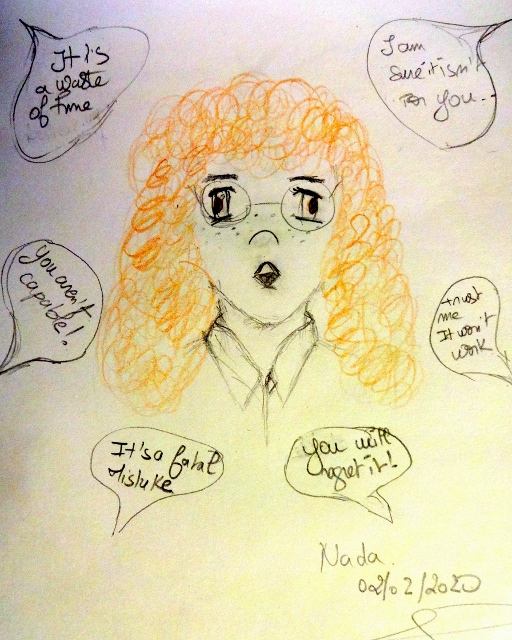 It is
a waste
of time
I am
sure it isn't
for you..
you aren't
capable!
trust
me
It won't
work
It's a fatal
mistake
you will
regret it!
Nada.
02/02/2020